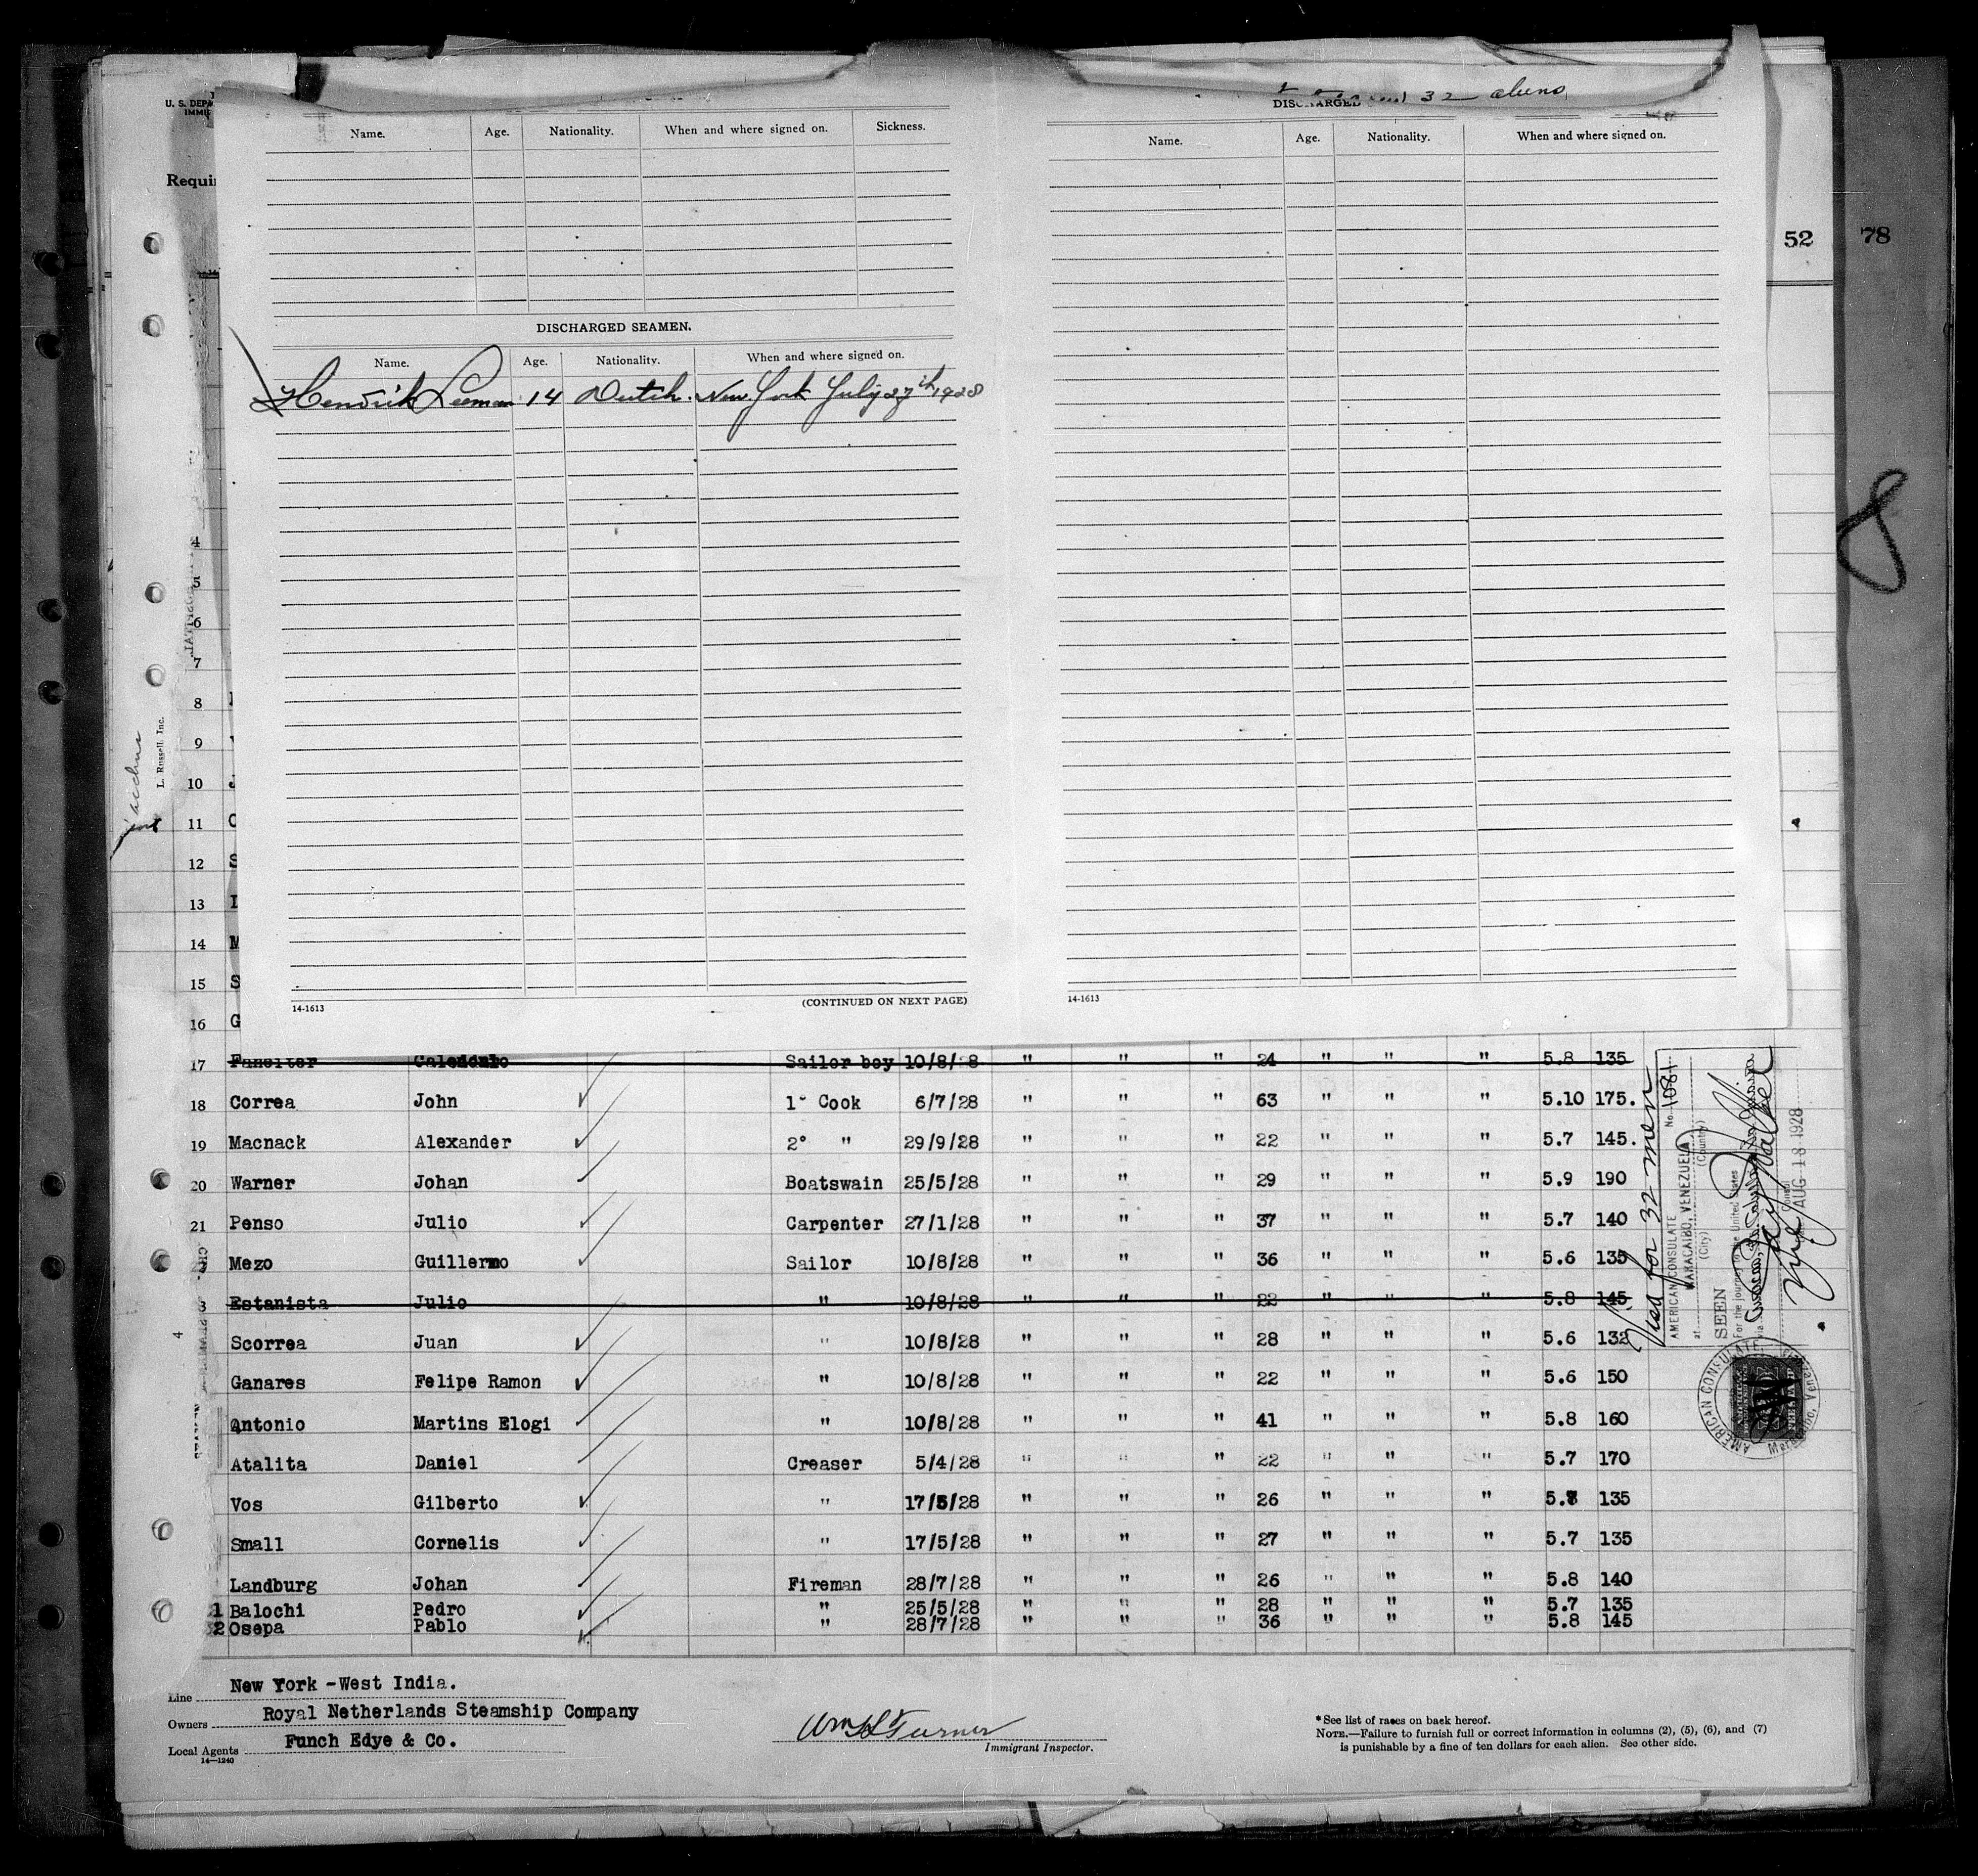 U. S. DEPA
IMMI
32 aliens
DISCHARGED
Name. Age. Nationality. When and where signed on. Sickness.
Name. Age. Nationality. When and where signed on.
Requir
52 78
DISCHARGED SEAMEN.
Name. Age. Nationality. When and where signed on.
Hendrik Leeman 14 Dutch. New York July 27th 1928
8
4
5
6
7
8
9
L. Russell, Inc.
10 J
11 C
12 S
13 I
14 M
15 S
16 G
14-1613 (CONTINUED ON NEXT PAGE) 14-1613
17 Sailor boy 10/8/28 " " " 24 " " " 5.8 135
18 Correa John 1° Cook 6/7/28 " " " 63 " " " 5.10 175.
19 Macnack Alexander 2° " 29/9/28 " " " 22 " " " 5.7 145.
20 Warner Johan Boatswain 25/5/28 " " " 29 " " " 5.9 190
21 Penso Julio Carpenter 27/1/28 " " " 37 " " " 5.7 140
Mezo Guillermo Sailor 10/8/28 " " " 36 " " " 5.6 135
3 Estanista Julio " 10/8/28 " " " 22 " " " 5.8 145
4 Scorrea Juan " 10/8/28 " " " 28 " " " 5.6 132
Ganares Felipe Ramon " 10/8/28 " " " 22 " " " 5.6 150
Antonio Martins Elogi " 10/8/28 " " " 41 " " " 5.8 160
Atalita Daniel Creaser 5/4/28 " " " 22 " " " 5.7 170
Vos Gilberto " 17/5/28 " " " 26 " " " 5.8 135
Small Cornelis " 17/5/28 " " " 27 " " " 5.7 135
Landburg Johan Fireman 28/7/28 " " " 26 " " " 5.8 140
1 Balochi Pedro " 25/5/28 " " " 28 " " " 5.7 135
2 Osepa Pablo " 28/7/28 " " " 36 " " " 5.8 145
Visa for 32 men
No. 1081
AMERICAN CONSULATE
at MARACAIBO, VENEZUELA
(City) (Country)
SEEN
For the journey to the United States
via
Vice Consul
AUG 18 1928
AMERICAN CONSULATE
Maracaibo, Venezuela
Line New York - West India.
Owners Royal Netherlands Steamship Company
Local Agents Funch Edye & Co.
14—1240
Wm H Turner
Immigrant Inspector.
* See list of races on back hereof.
NOTE.—Failure to furnish full or correct information in columns (2), (5), (6), and (7)
is punishable by a fine of ten dollars for each alien. See other side.